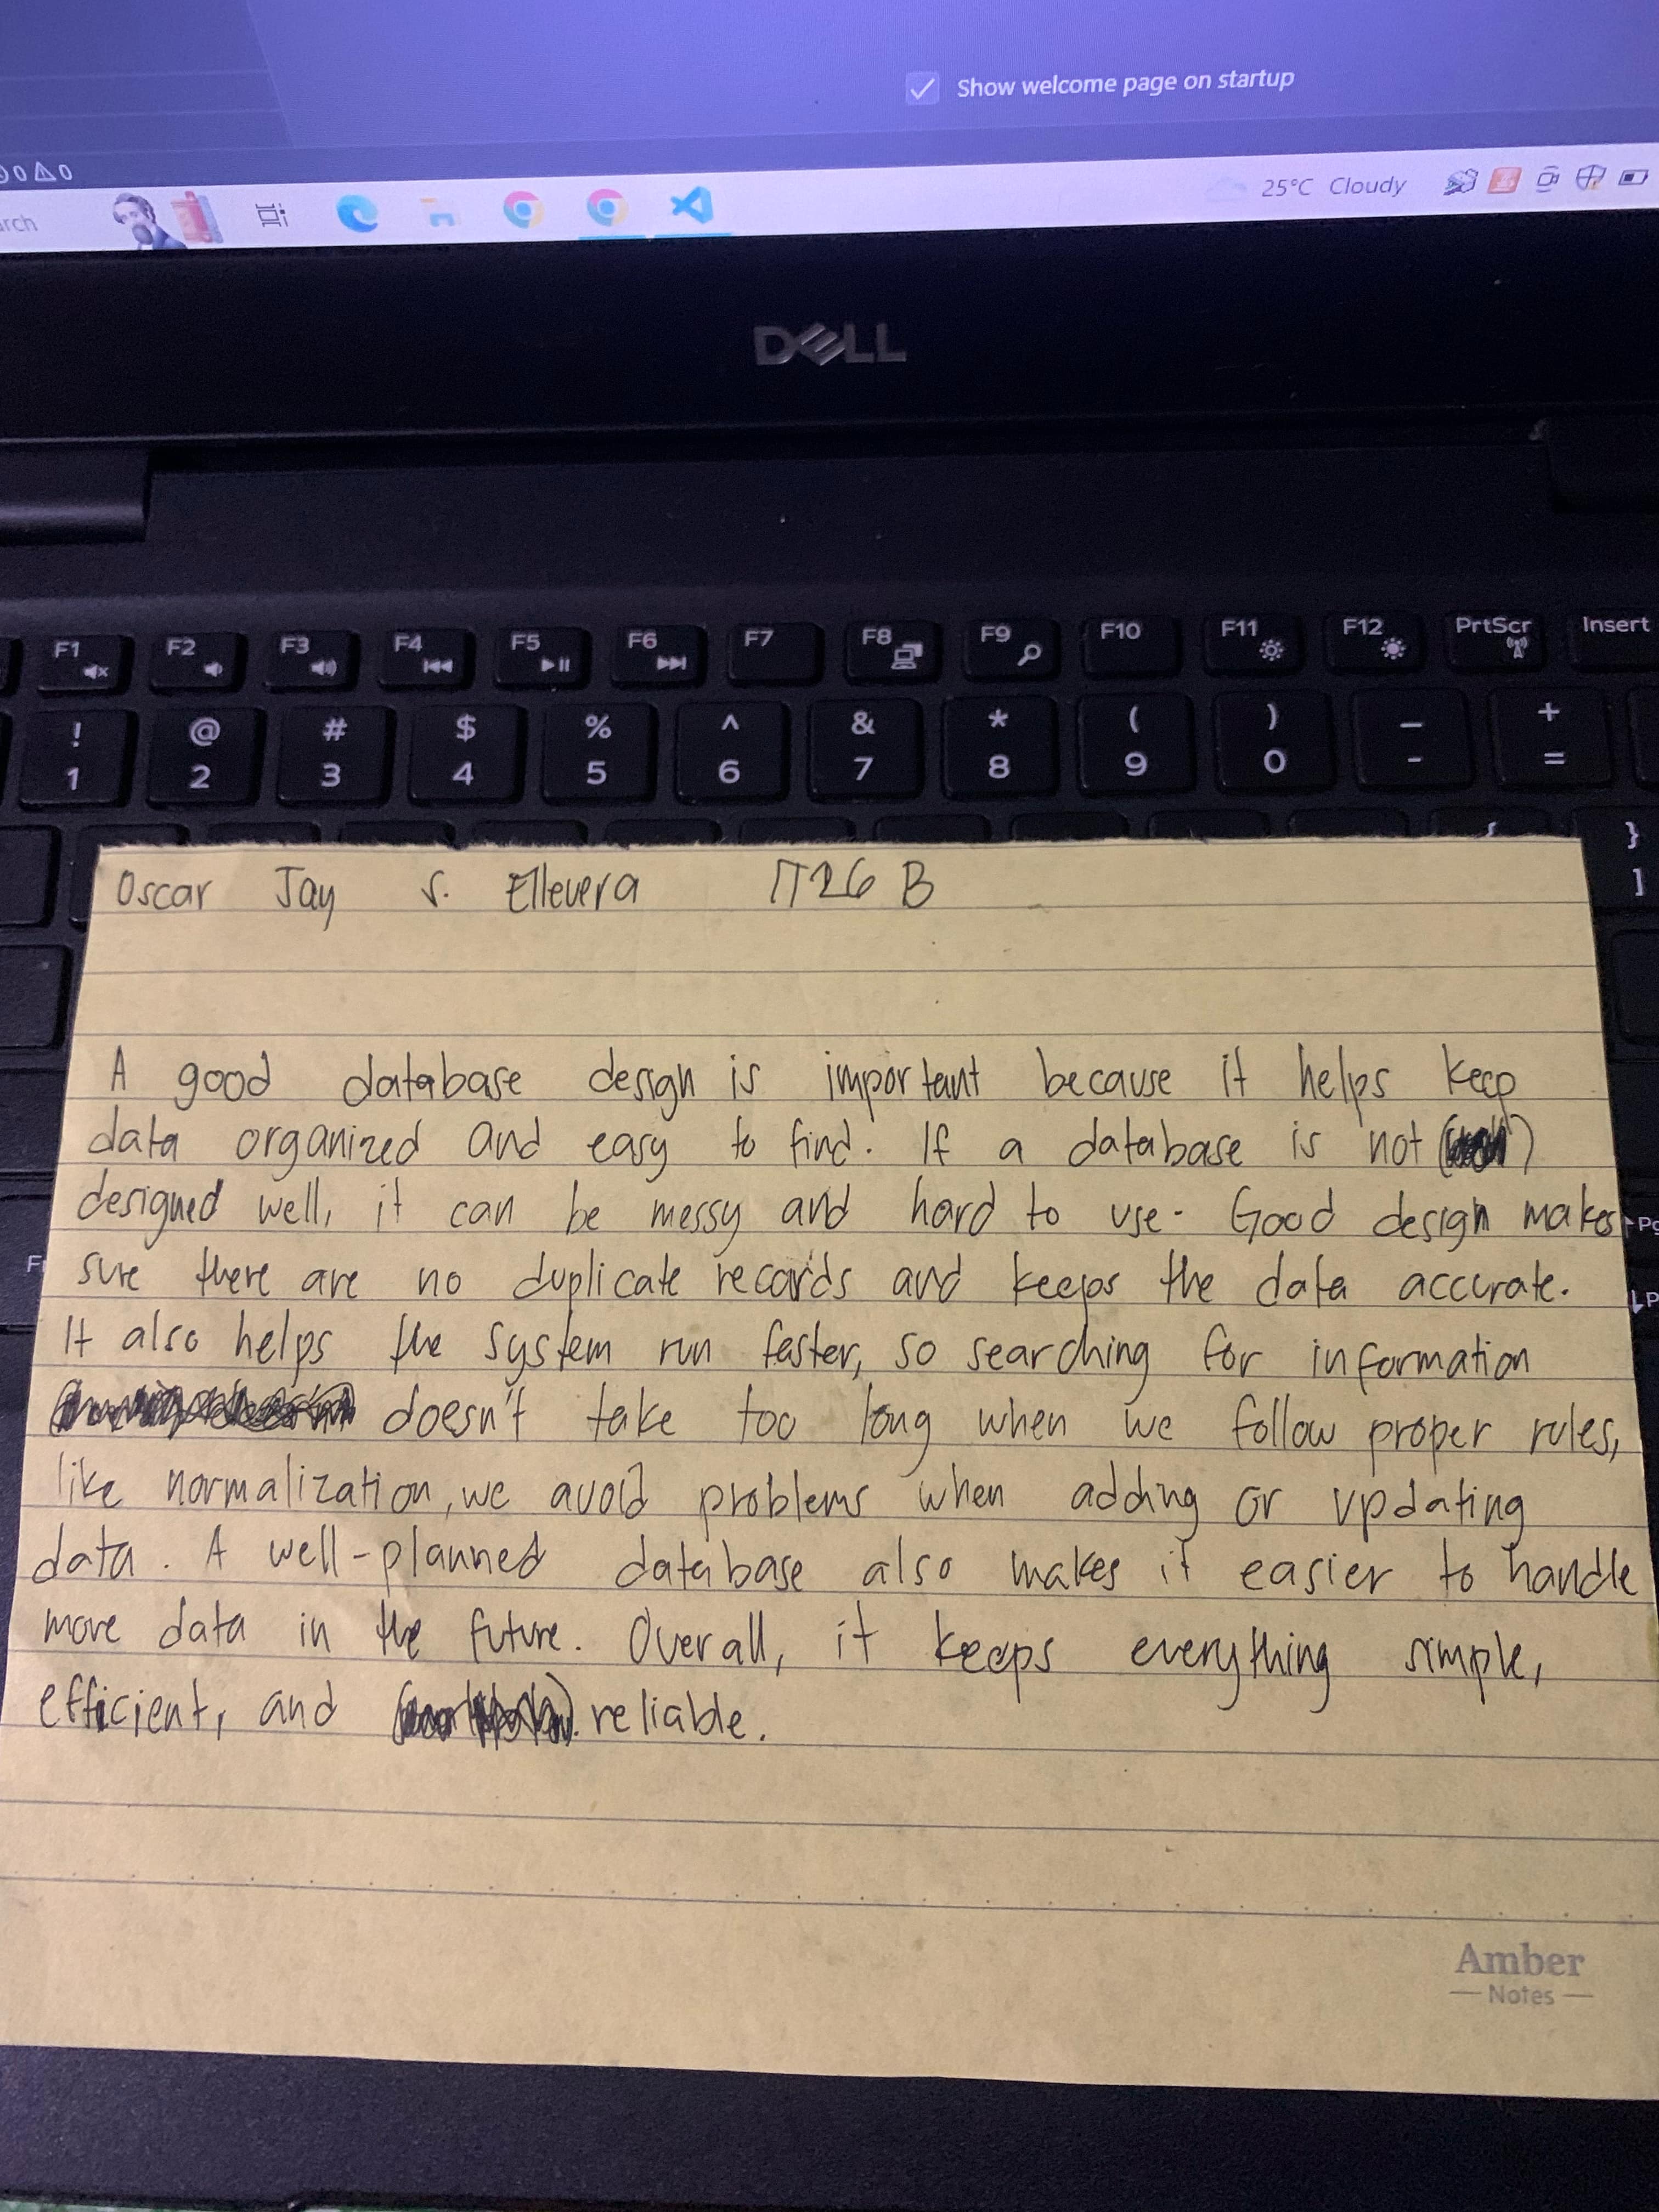 Show welcome page on startup
0 0
25°C Cloudy
DELL
F1 F2 F3 F4 F5 F6 F7 F8 F9 F10 F11 F12 PrtScr Insert
! @ # $ % ^ & * ( ) _ +
1 2 3 4 5 6 7 8 9 0 - =
{ }
]
Oscar Jay S. Ellevera IT26 B
A good database design is important because it helps keep
data organized and easy to find. If a database is not
designed well, it can be messy and hard to use. Good design makes
sure there are no duplicate records and keeps the data accurate.
It also helps the system run faster, so searching for information
doesn't take too long when we follow proper rules,
like normalization, we avoid problems when adding or updating
data. A well-planned database also makes it easier to handle
more data in the future. Overall, it keeps everything simple,
efficient, and reliable.
Amber
Notes